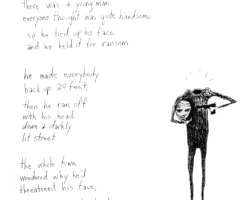 there was a young man
everyone thought was quite handsome
so he tied up his face
and he held it for ransom.
he made everybody
back up 20 feet,
then he ran off
with his head
down a darkly
lit street
the whole town
wondered why he'd
threatened his face,